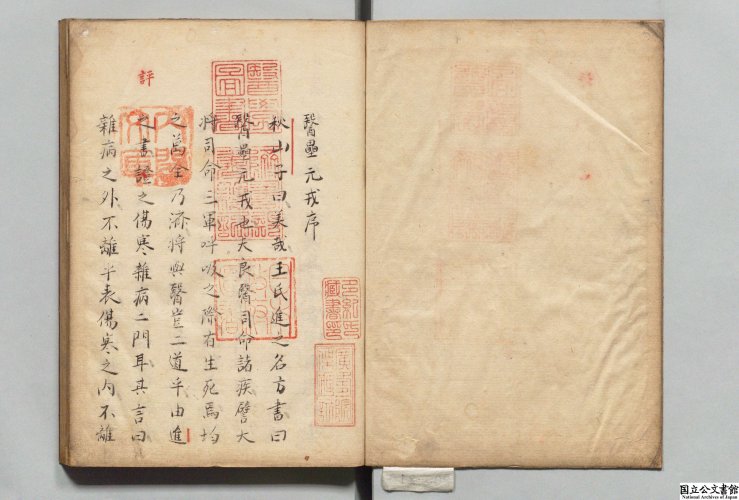 醫壘元戎序
秋山子曰美哉王氏進之名方書曰
醫壘元戎也夫良醫司命諸疾譬大
将司命三軍呼吸之際有生死焉均
之萬全乃濟将與醫豈二道乎由進
之書證之傷寒雜病二門耳其言曰
雜病之外不離乎表傷寒之内不離
評
国立公文書館
National Archives of Japan